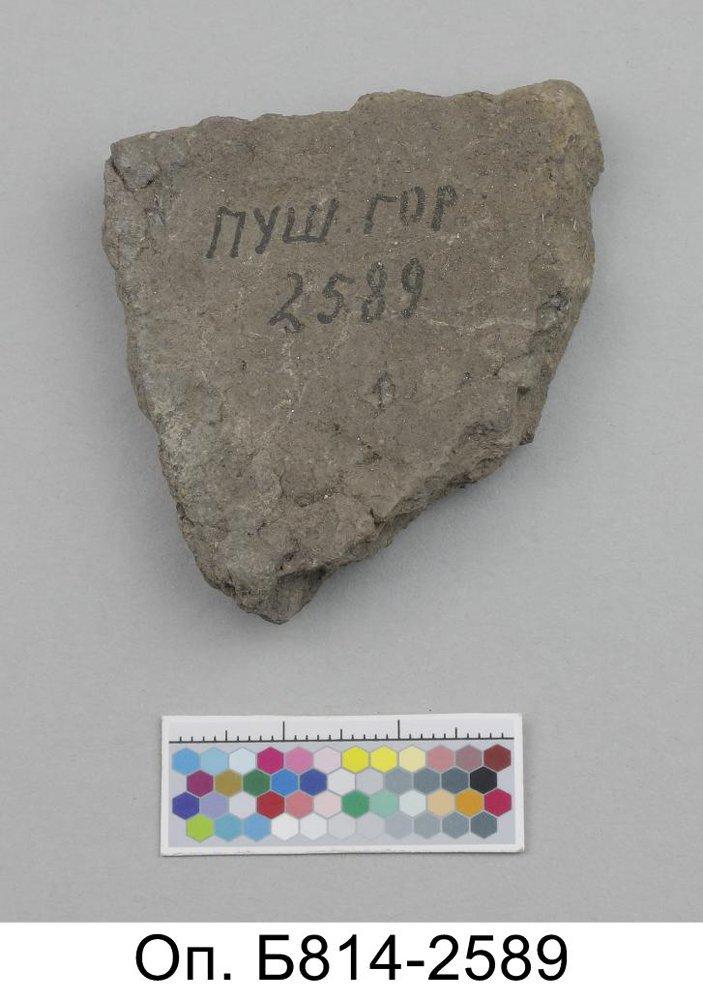 ПУШ. ГОР
2589
Оп. Б814-2589